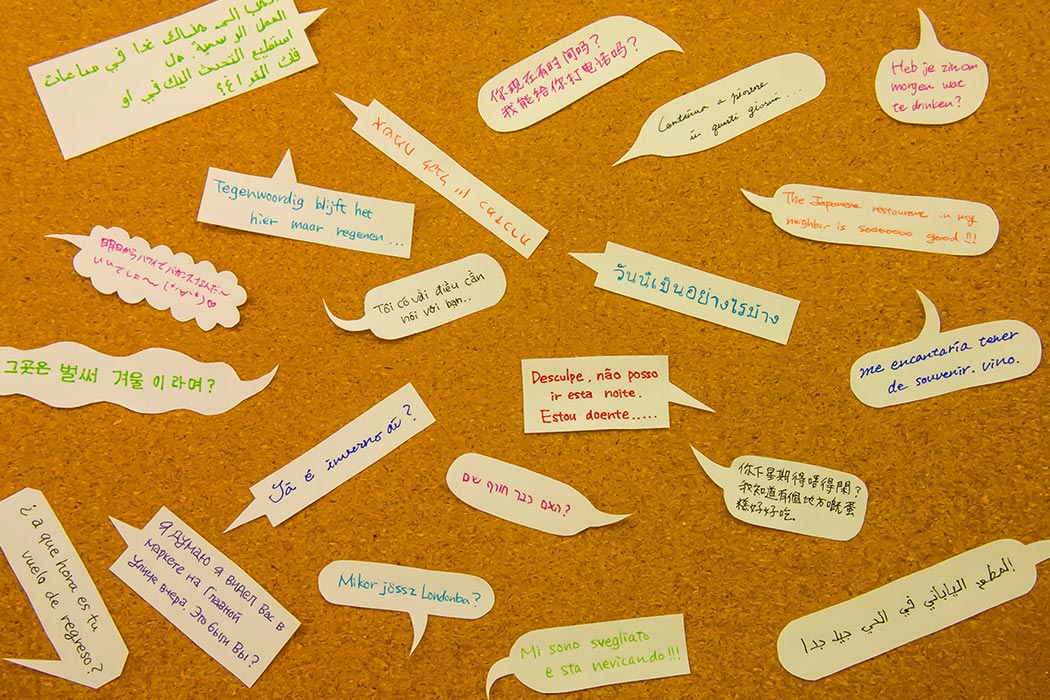 إلى هناك غدا في ساعات
العمل الرسمية. هل
استطيع التحدث اليك في او
قات الفراغ؟
你现在有时间吗?
我能给你打电话吗?
Continua a piovere
in questi giorni...
Heb je zin om
morgen wat
te drinken?
Tegenwoordig blijft het
hier maar regenen...
The Japanese restaurant in my
neighbor is soooooooo good!!!
明日からハワイでバカンスなんだ〜
いいでしょ〜
Tôi có vài điều cần
nói với bạn..
วันนี้เป็นอย่างไรบ้าง
me encantaría tener
de souvenir. vino.
그곳은 벌써 겨울이라며?
Desculpe, não posso
ir esta noite.
Estou doente.....
Já é inverno aí?
האם כבר חורף שם?
你下星期得唔得閒?
我知道有個地方嘅蛋
糕好好吃。
¿a que hora es tu
vuelo de regreso?
Я думаю я видел Вас в
маркете на Главной
Улице вчера. Это были Вы?
Mikor jössz Londonba?
Mi sono svegliato
e sta nevicando!!!
المطعم الياباني في الحي جيد جدا!